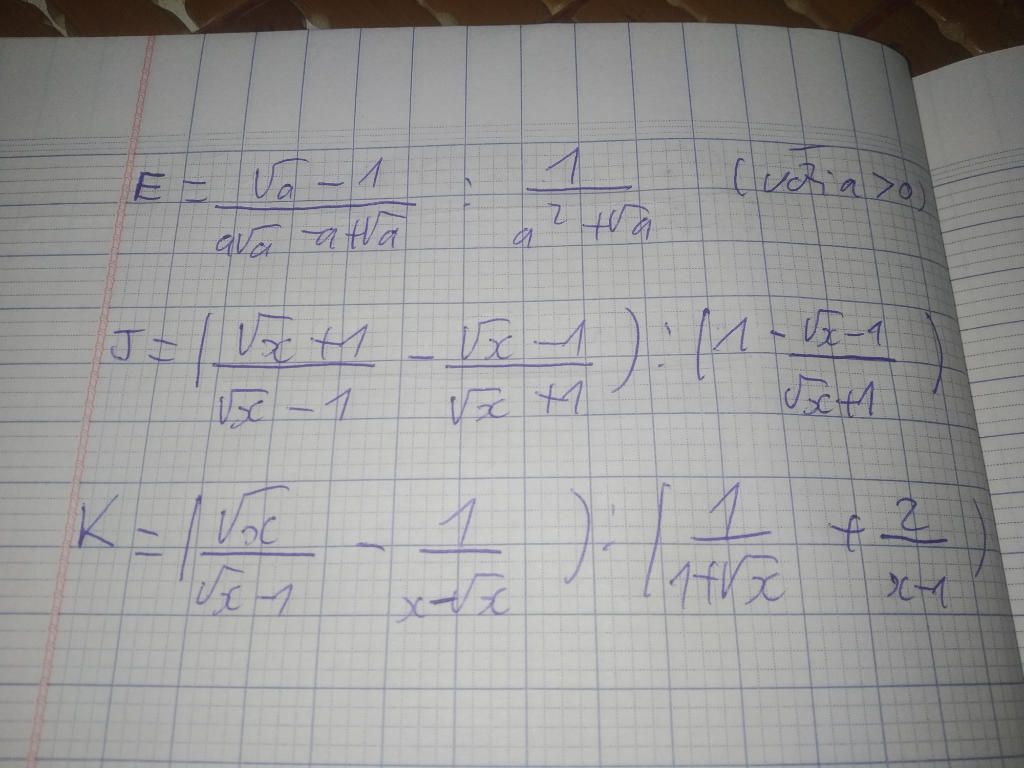 E = (√a - 1)/(a√a - a + √a) : 1/(a² + √a) (với a > 0)
J = ((√x + 1)/(√x - 1) - (√x - 1)/(√x + 1)) : (1 - (√x - 1)/(√x + 1))
K = (√x/(√x - 1) - 1/(x - √x)) : (1/(1 + √x) + 2/(x - 1))